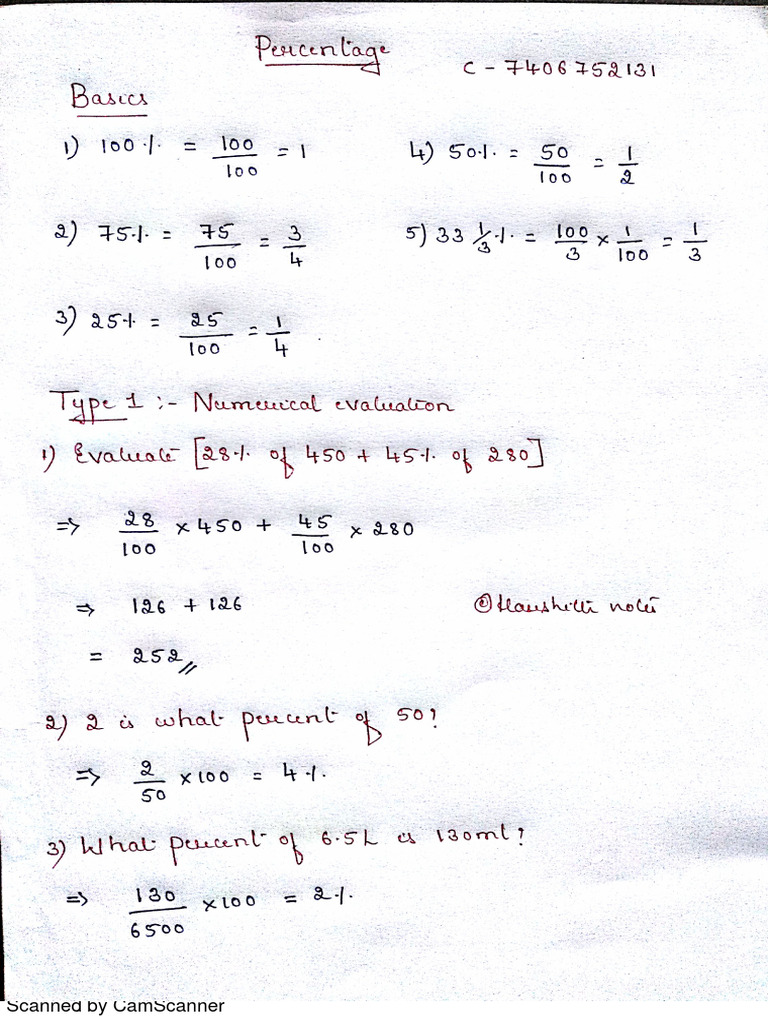 Percentage
C - 7406752131
Basics
1) 100% = 100/100 = 1
4) 50% = 50/100 = 1/2
2) 75% = 75/100 = 3/4
5) 33 1/3% = 100/3 × 1/100 = 1/3
3) 25% = 25/100 = 1/4
Type 1 :- Numerical evaluation
1) Evaluate [28% of 450 + 45% of 280]
⇒ 28/100 × 450 + 45/100 × 280
⇒ 126 + 126
© notes
= 252//
2) 2 is what percent of 50?
⇒ 2/50 × 100 = 4%.
3) What percent of 6.5L is 130ml?
⇒ 130/6500 × 100 = 2%.
Scanned by CamScanner